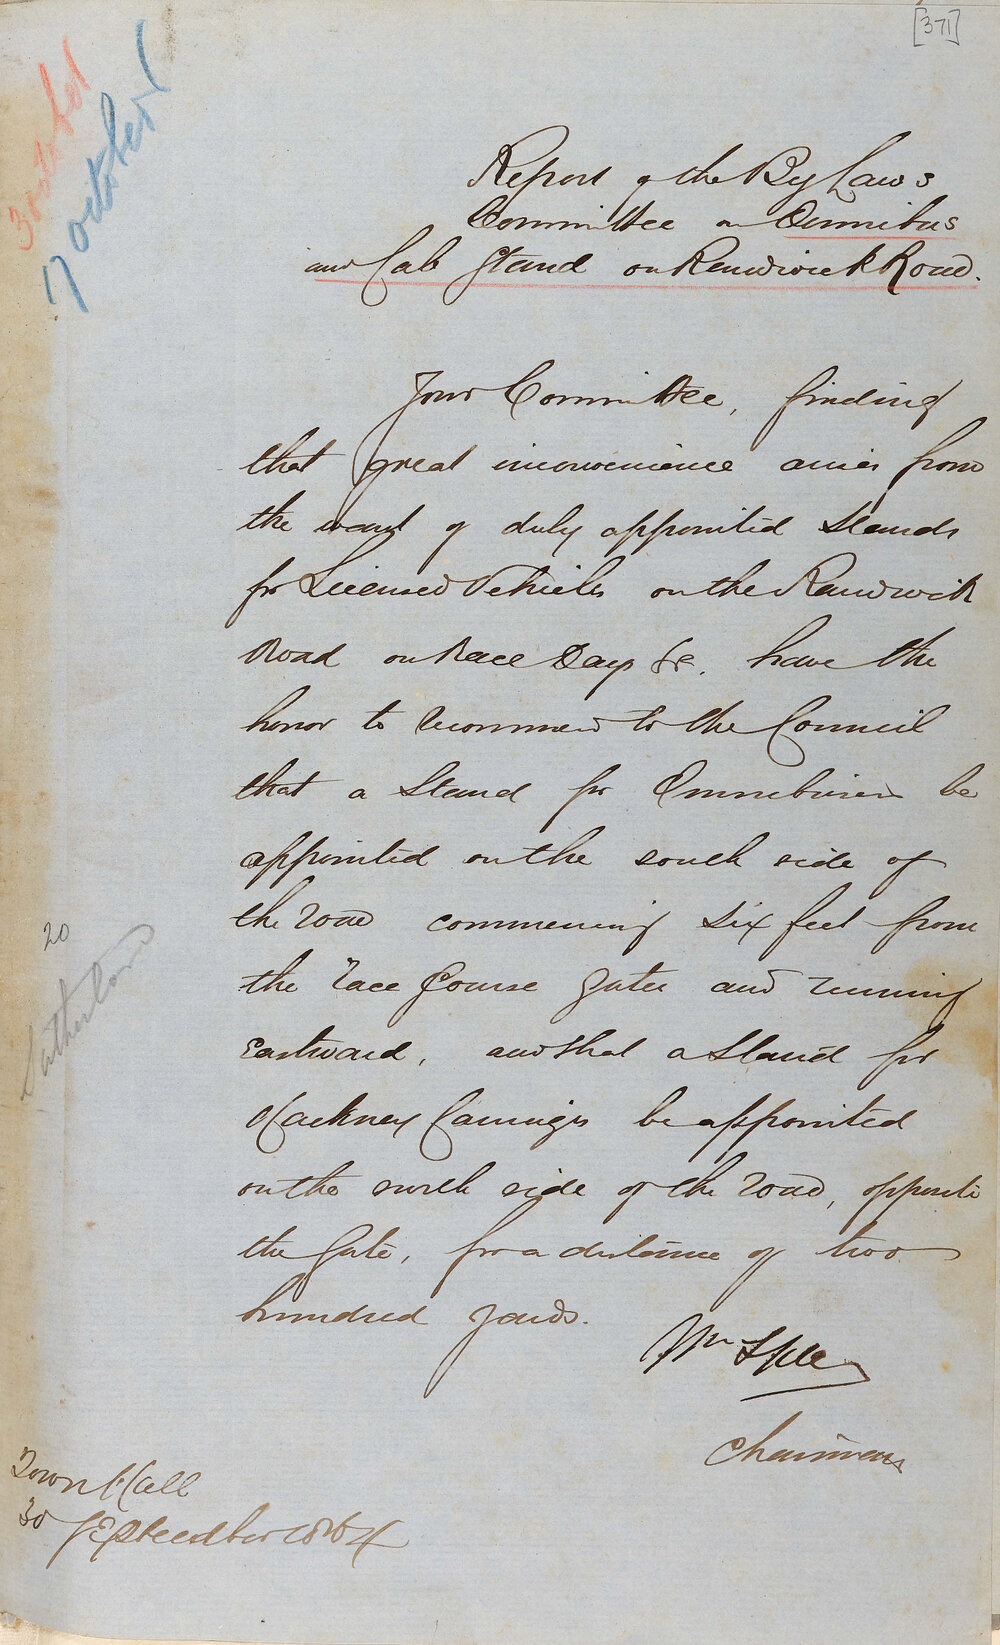 [371]
7 October
Report of the By Laws
Committee on Omnibus
and Cab Stand on Randwick Road.
Your Committee, finding
that great inconvenience arises from
the want of duly appointed Stands
for Licensed Vehicles on the Randwick
Road on Race Days &c. have the
honor to recommend to the Council
that a Stand for Omnibuses be
appointed on the south side of
the road commencing six feet from
the race Course gates and running
Eastward, and that a Stand for
Hackney Carriages be appointed
on the north side of the road, opposite
the Gate, for a distance of two
hundred yards.
20
Wm Speer
Chairman
Town Hall
30 September 1864